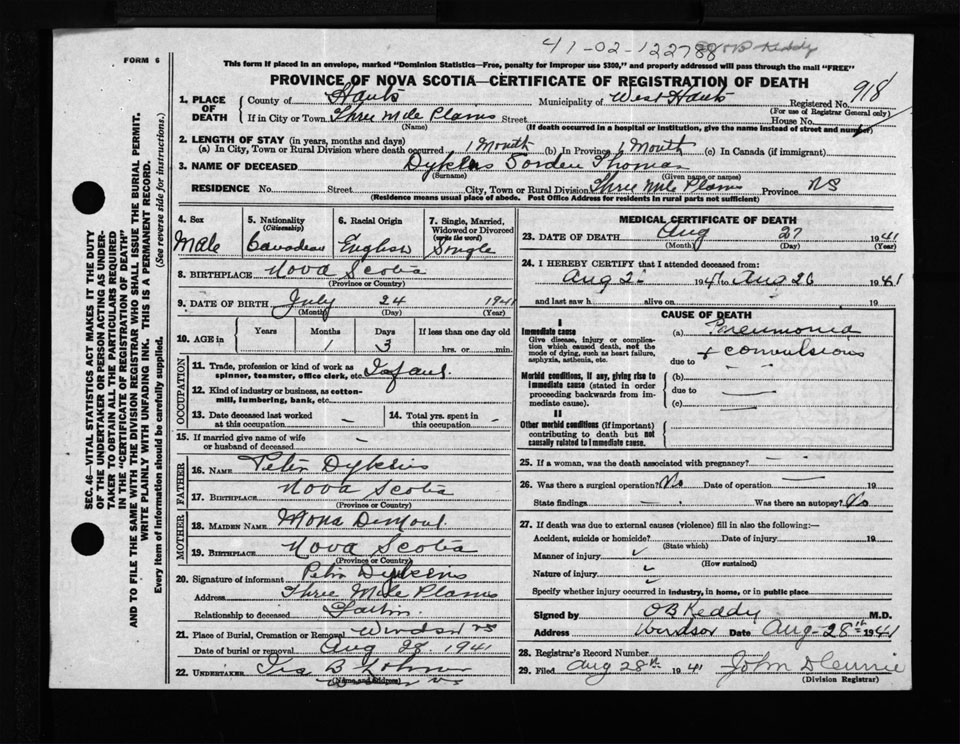 41-02-122788 OB Keddy
FORM 6
This form if placed in an envelope, marked "Dominion Statistics—Free, penalty for improper use $300," and properly addressed will pass through the mail "FREE"
PROVINCE OF NOVA SCOTIA—CERTIFICATE OF REGISTRATION OF DEATH
918
1. PLACE OF DEATH County of Hants Municipality of West Hants Registered No.
(For use of Registrar General only)
If in City or Town Three Mile Plains Street House No.
(Name) (If death occurred in a hospital or institution, give the name instead of street and number)
2. LENGTH OF STAY (in years, months and days)
(a) In City, Town or Rural Division where death occurred 1 Month (b) In Province 1 Month (c) In Canada (if immigrant)
3. NAME OF DECEASED Dykens Thomas
(Surname) (Given name or names)
RESIDENCE No. Street City, Town or Rural Division Three Mile Plains Province NS
(Residence means usual place of abode. Post Office Address for residents in rural parts not sufficient)
4. Sex Male
5. Nationality (Citizenship) Canadean
6. Racial Origin English
7. Single, Married, Widowed or Divorced (write the word) Single
8. BIRTHPLACE Nova Scotia
(Province or Country)
9. DATE OF BIRTH July 24 1941
(Month) (Day) (Year)
10. AGE in Years Months Days If less than one day old
1 3 hrs. or min.
OCCUPATION
11. Trade, profession or kind of work as spinner, teamster, office clerk, etc. Infant.
12. Kind of industry or business, as cotton-mill, lumbering, bank, etc.
13. Date deceased last worked at this occupation —
14. Total yrs. spent in this occupation —
15. If married give name of wife or husband of deceased —
FATHER
16. NAME Peter Dykens
17. BIRTHPLACE Nova Scotia
(Province or Country)
MOTHER
18. MAIDEN NAME Mona Demont
19. BIRTHPLACE Nova Scotia
(Province or Country)
20. Signature of informant Peter Dykens
Address Three Mile Plains
Relationship to deceased Father
21. Place of Burial, Cremation or Removal Windsor NS
Date of burial or removal Aug 28, 1941
22. UNDERTAKER
(Name and Address)
MEDICAL CERTIFICATE OF DEATH
23. DATE OF DEATH Aug 27 1941
(Month) (Day) (Year)
24. I HEREBY CERTIFY that I attended deceased from:
Aug 1941 to Aug 26 1941
and last saw h alive on 19
CAUSE OF DEATH
I
Immediate cause (a) Pneumonia
Give disease, injury or complication which caused death, not the mode of dying, such as heart failure, asphyxia, asthenia, etc.
due to + convulsions
Morbid conditions, if any, giving rise to immediate cause (stated in order proceeding backwards from immediate cause).
(b)
due to —
(c) —
II
Other morbid conditions (if important) contributing to death but not causally related to immediate cause.
25. If a woman, was the death associated with pregnancy? —
26. Was there a surgical operation? No Date of operation — 19
State findings — Was there an autopsy? No
27. If death was due to external causes (violence) fill in also the following:—
Accident, suicide or homicide? Date of injury 19
(State which)
Manner of injury
(How sustained)
Nature of injury
Specify whether injury occurred in industry, in home, or in public place
Signed by OB Keddy M.D.
Address Windsor Date Aug-28th 1941
28. Registrar's Record Number
29. Filed Aug 28th 1941
(Division Registrar)
SEC. 46—VITAL STATISTICS ACT MAKES IT THE DUTY
OF THE UNDERTAKER OR PERSON ACTING AS UNDER-
TAKER TO OBTAIN ALL THE PARTICULARS REQUIRED
IN THE "CERTIFICATE OF REGISTRATION OF DEATH"
AND TO FILE THE SAME WITH THE DIVISION REGISTRAR WHO SHALL ISSUE THE BURIAL PERMIT.
WRITE PLAINLY WITH UNFADING INK. THIS IS A PERMANENT RECORD.
Every item of information should be carefully supplied. (See reverse side for instructions.)